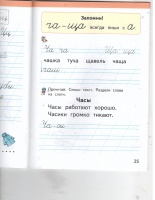 Запомни!
ча-ща всегда пиши с а.
Ча ча Ща ща
чашка туча щавель чаща
Прочитай. Спиши текст. Раздели слова на слоги.
Часы
Часы работают хорошо.
Часики громко тикают.
Ча
25